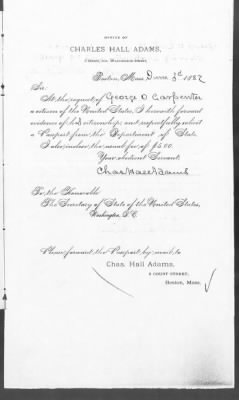 OFFICE OF
CHARLES HALL ADAMS,
Boston, Mass. June 3d 1882
Sir:
At the request of George O Carpenter
a citizen of the United States, I herewith forward
evidence of his citizenship, and respectfully solicit
a Passport from the Department of State.
I also inclose the usual fee of $5.00.
Your obedient Servant
Chas Hall Adams
To the Honorable
The Secretary of State of the United States,
Washington, D.C.
Please forward the Passport by mail, to
Chas. Hall Adams,
8 COURT STREET,
Boston, Mass.